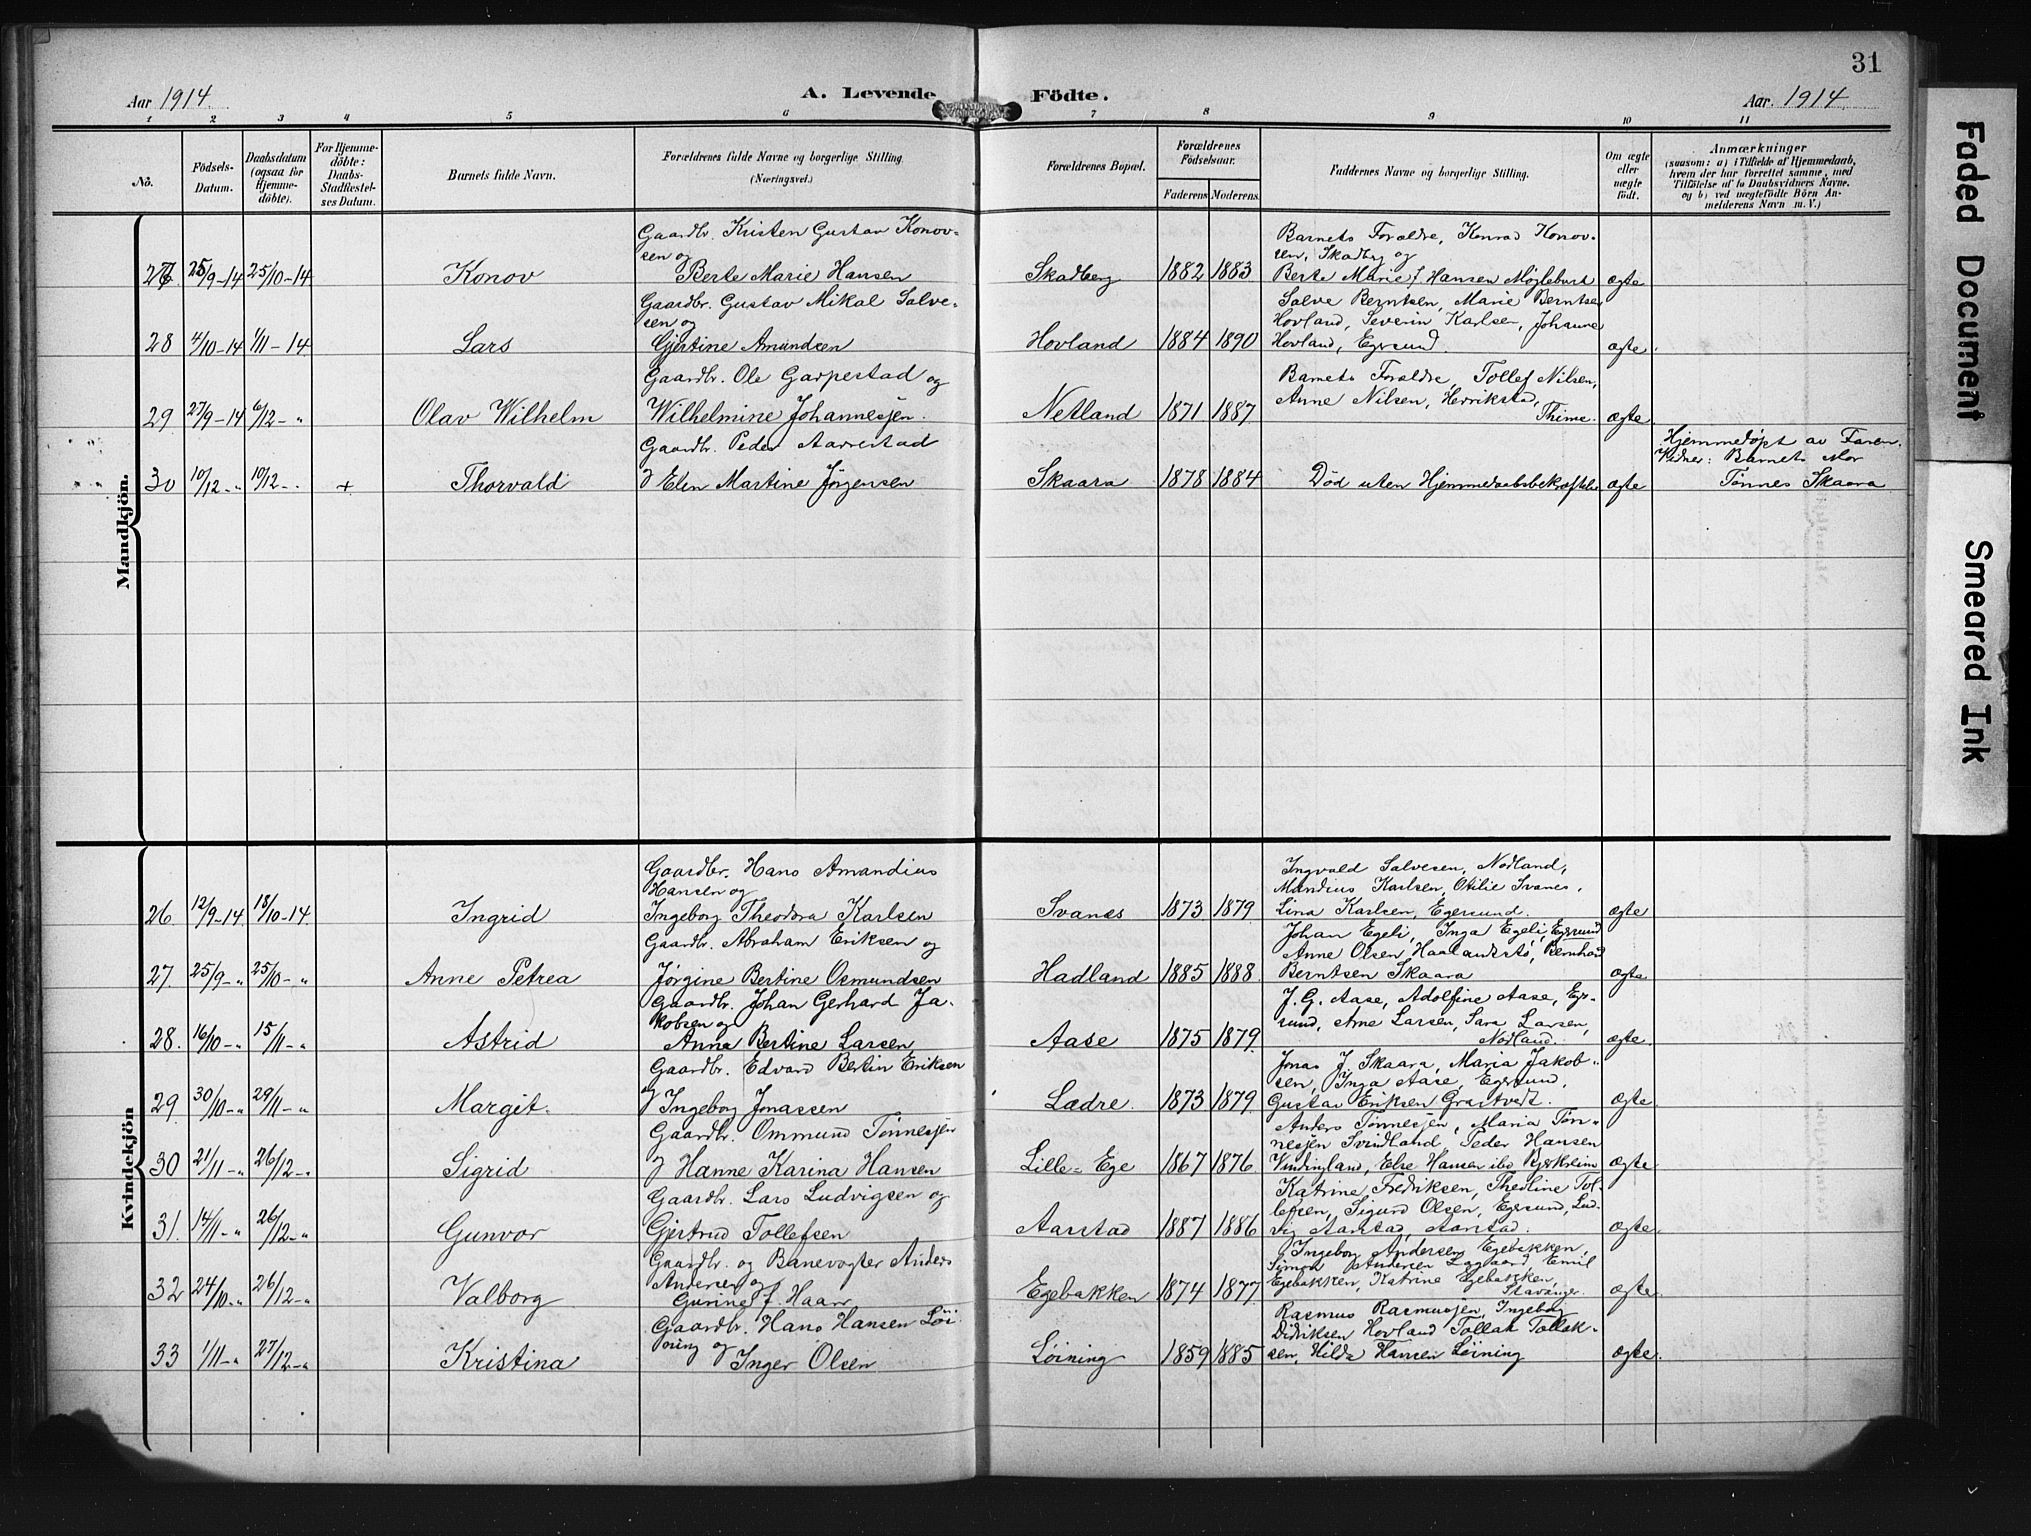 31
Aar 1914.
A. Levende Födte.
Aar. 1914.
1 2 3 4 5 6 7 8 9 10 11
No.
Födsels-
Datum.
Daabsdatum
(ogsaa for
Hjemme-
döbte).
For Hjemme-
döbte:
Daabs-
Stadfæstel-
ses Datum.
Barnets fulde Navn.
Forældrenes fulde Navne og borgerlige Stilling.
(Næringsvei.)
Forældrenes Bopæl.
Forældrenes
Födselsaar.
Faderens Moderens
Faddernes Navne og borgerlige Stilling.
Om ægte
eller
uægte
födt.
Anmærkninger
(saasom: a) i Tilfælde af Hjemmedaab,
hvem der har forrettet samme, med
Tilföielse af to Daabsvidners Navne,
og b) ved uægtefödte Börn An-
melderens Navn m. V.)
Mandkjön.
27 25/9-14 25/10-14 Konov
Gaardbr. Kristen Gustav Konov-
sen og
Berte Marie Hansen
Skadberg 1882 1883
Barnets Forældre, Konrad Konov-
sen, Skadberg og
Berte Marie f. Hansen Møglebust
ægte
28 4/10-14 1/11-14 Lars
Gaardbr. Gustav Mikal Salve-
sen og
Gjertine Amundsen
Hovland 1884 1890
Salve Berntsen, Marie Berntsen
Hovland, Severin Karlsen, Johanne
Hovland, Egersund.
ægte.
29 27/9-14 6/12-" Olav Wilhelm
Gaardbr. Ole Garpestad og
Wilhelmine Johannesjen.
Netland 1871 1887
Barnets Forældre, Tollef Nilsen,
Anne Nilsen, Herrikstad,
Thime.
ægte.
30 10/12-" 10/12-" + Thorvald
Gaardbr. Peder Aarrestad
J Elen Martine Jørgensen
Skaara 1878 1884
Død uten Hjemmedaabsbekræftelse
ægte
Hjemmedøpt av Faren.
Vidner: Barnets Mor
Tønnes Skaara
Kvindekjön
26 12/9-14 18/10-14 Ingrid
Gaardbr. Hans Amandius
Hansen og
Ingeborg Theodora Karlsen
Svanes 1873 1879
Ingvald Salvesen, Nodland,
Mandius Karlsen, Otilie Svanes,
Lina Karlsen, Egersund.
ægte
27. 25/9-" 25/10-" Anne Petrea
Gaardbr. Abraham Eriksen og
Jørgine Bertine Osmundsen
Hadland 1885 1888
Johan Egeli, Inga Egeli, Egersund
Anne Olsen, Haalandstø, Bernhard
Berntsen Skaara
ægte
28. 16/10-" 15/11-" Astrid
Gaardbr. Johan Gerhard Ja-
kobsen og
Anna Bertine Larsen
Aase 1875 1879.
J. G. Aase, Adolfine Aase, Eger-
sund, Arne Larsen, Sara Larsen,
Nodland.
ægte.
29. 30/10-" 29/11-" Margit.
Gaardbr. Edvard Bertin Eriksen
og
Ingeborg Jonassen
Lædre. 1873 1879.
Jonas J. Skaara, Maria Jakob-
sen, Inga Aase, Egersund,
Gustav Eriksen Grastvedt.
ægte.
30 21/11-" 26/12-" Sigrid
Gaardbr. Ommund Tønnesjen
J Hanne Karina Hansen
Lille-Ege 1867 1876
Anders Tønnesjen, Maria Tøn-
nesjen Svindland, Peder Hansen
Vindingland, Else Hansen ibd Bjerkheim
ægte.
31. 14/11-" 26/12-" Gunvor
Gaardbr. Lars Ludvigsen og
Gjertrud Tollefsen
Aarstad 1887 1886
Katrine Fredriksen, Thedline Tol-
lefsen, Sigurd Olsen, Egersund, Lud-
vig Aarstad, Aarstad.
ægte.
32 24/10-" 26/12-" Valborg
Gaardbr. og Banevogter Anders
Andersen og
Gurine f. Haarr
Egebakken 1874 1877
Ingeborg Andersen, Egebakken,
Simon Andersen Lygaard, Emil
Egebakken, Katrine Egebakken,
Stavanger.
ægte.
33 1/11-" 27/12-" Kristina
Gaardbr. Hans Hansen Löi-
ning og
Inger Olsen
Løining 1859 1885
Rasmus Rasmussjen, Ingeborg
Didriksen Hovland Tollak Tollak-
sen, Hilda Hansen Løining
ægte.
Faded Document
Smeared Ink